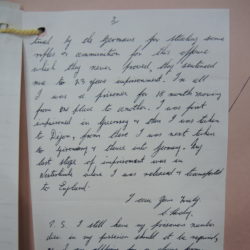 2
tried by the Germans for stealing some
rifles & ammunition for this offence
which they never proved, they sentenced
me to 2½ years imprisonment. In all
I was a prisoner for 18 month moving
from one place to another. I was first
imprisoned in Guernsey & then I was taken
to Dijon, from that I was next taken
to Germany & there into
last stage of imprisonment was in
where I was released & transported
to England.
I am Yours Truly
P.S. I still have my prisoners number
disc in my possession should it be required